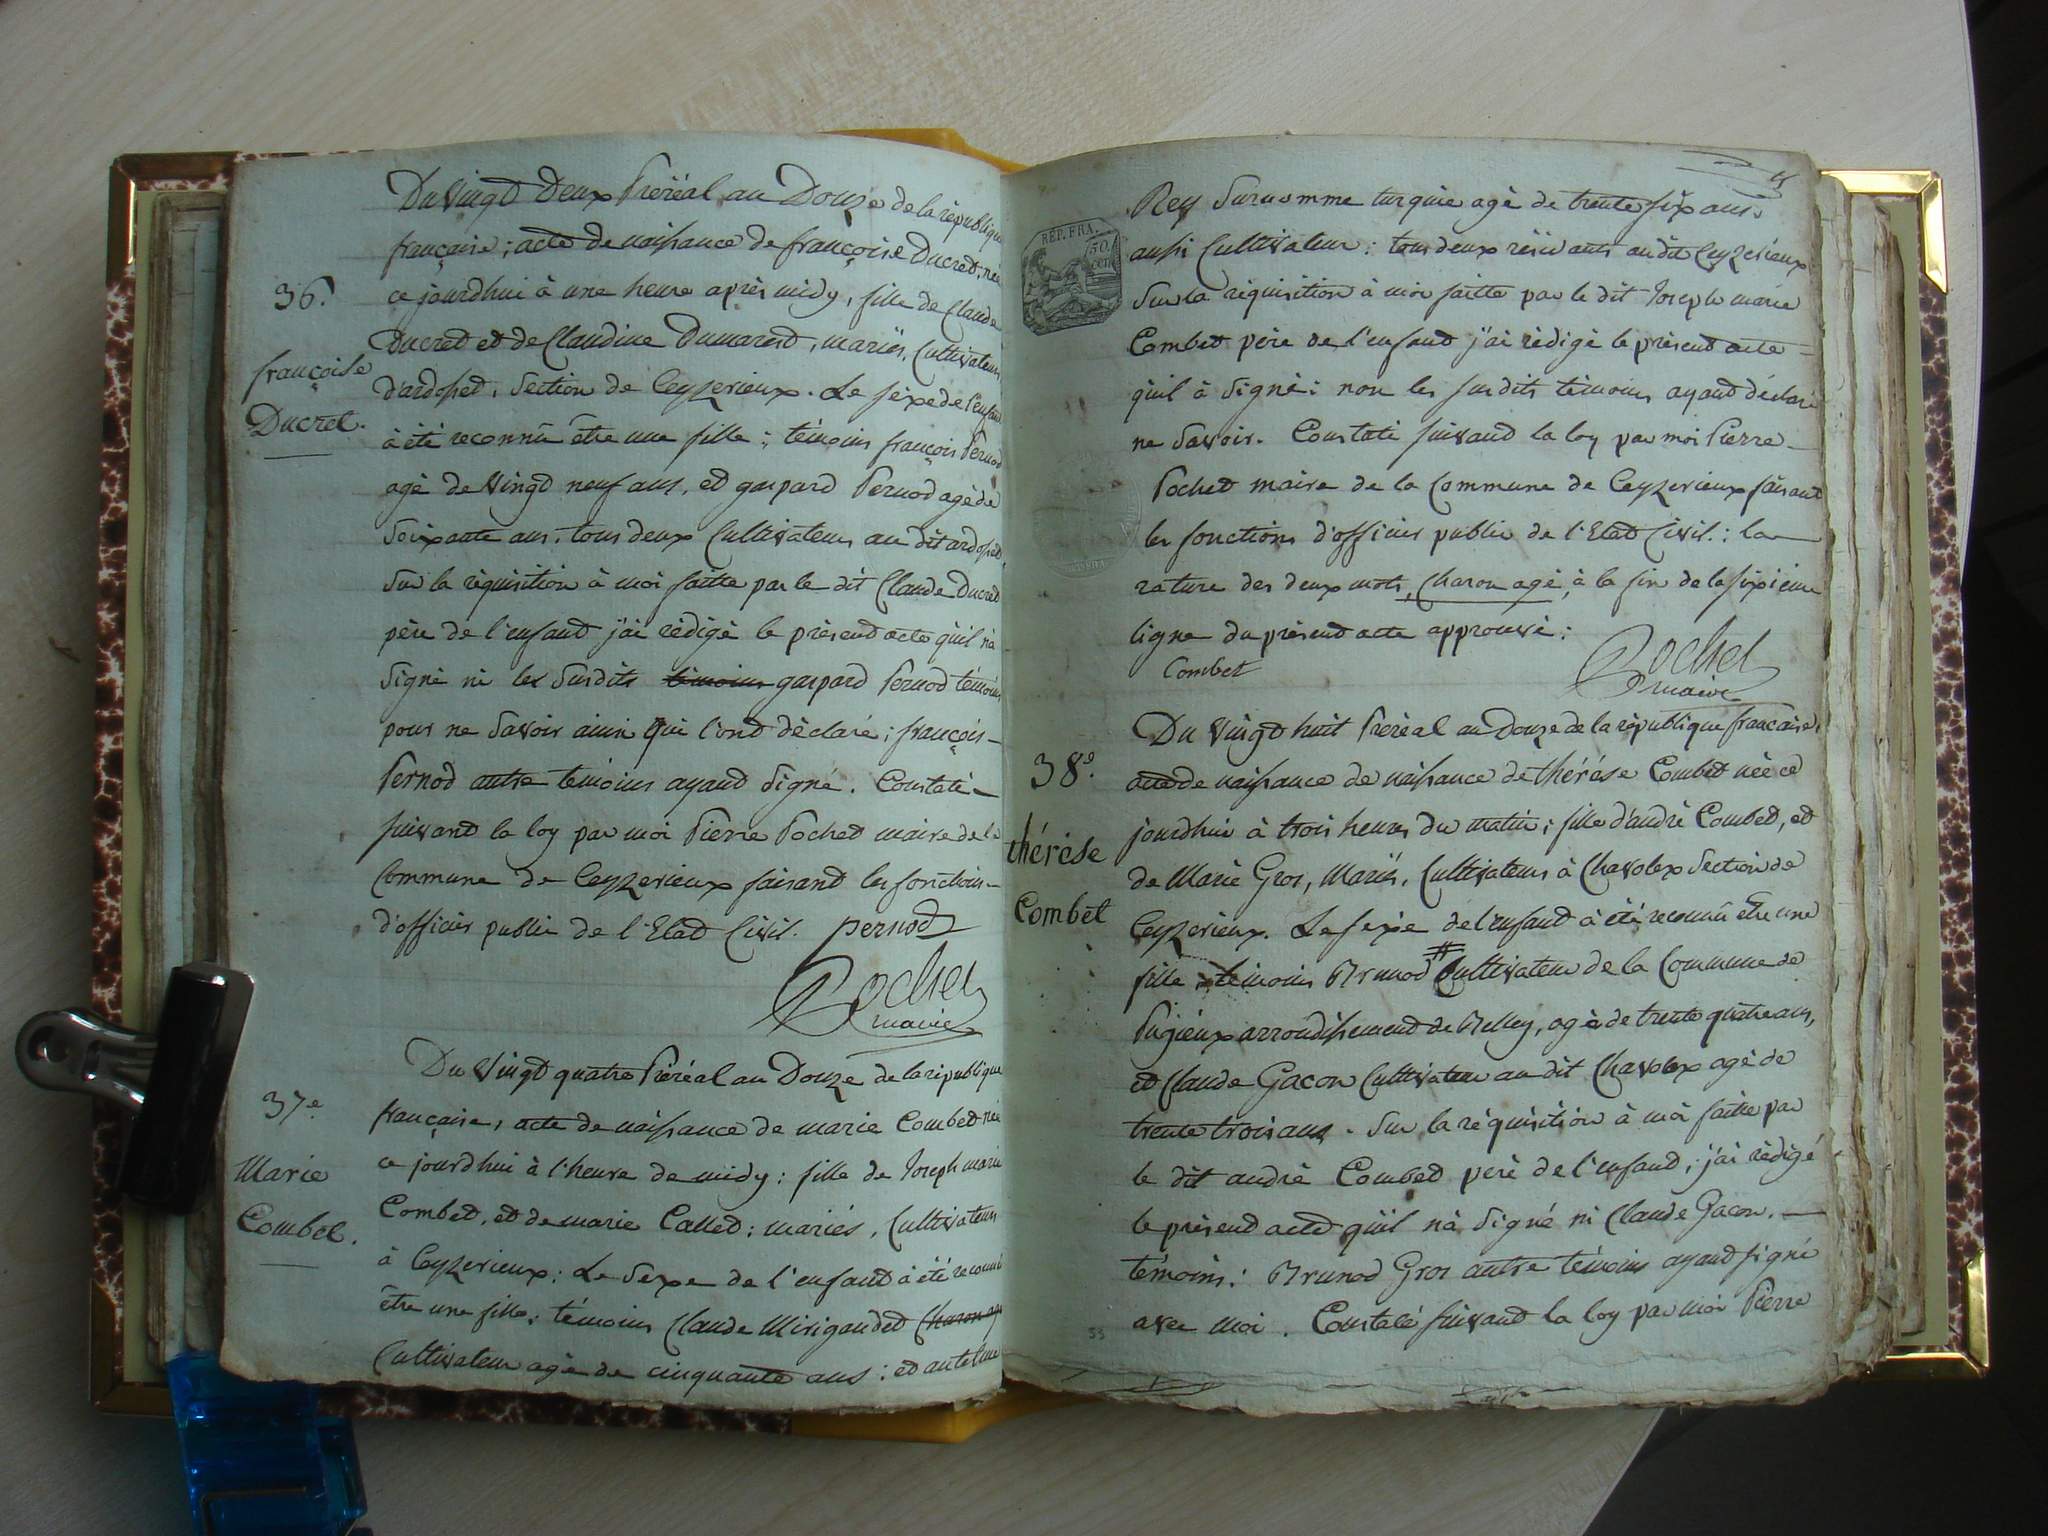 Du Vingt Deux Preréal an Douze de la république
36.
française ; acte de naissance de françoise Ducret, née
ce jourdhui à une heure après midy, fille de Claude
Ducret et de Claudine Dumarest, mariés, Cultivateurs
françoise
Ducret.
d'ardosset, Section de Ceyzerieux. Le sèxe de l'enfant
à été reconnû être une fille ; témoins françois Pernod
agé de Vingt neuf ans, et gaspard Pernod agé de
Soixante ans, tous deux Cultivateurs au dit ardosset
Sur la réquisition à moi faitte par le dit Claude Ducret
père de l'enfant j'ai rédigé le présent acte qùil n'à
Signé ni les Susdits témoins gaspard Pernod témoin
pour ne Savoir ainsi qui l'ont déclaré ; françois
Pernod autre témoins ayant Signé. Constaté
suivant la loy par moi Pierre Pochet maire de la
Commune de Ceyzerieux faisant les fonctions
d'officier public de l'Etat Civil. pernod
Pochet
maire
Du Vingt quatre Préréal an Douze de la république
37e
française, acte de naissance de marie Combet née
ce jourdhui à l'heure de midy : fille de Joseph marie
Marie
Combet.
Combet, et de marie Callet : mariés, Cultivateurs
à Ceyzerieux ; Le Sexe de l'enfant à été reconnû
être une fille ; témoins Claude Mirigaudet Charon agé
Cultivateur agé de cinquante ans : et antelme
Rey Surnomme turquie agé de trente six ans
RÉP. FRA.
50.
CEN.
aussi Cultivateur : tous deux résidants au dit Ceyzerieux
Sur la réquisition à moi faitte par le dit Joseph marie
Combet père de l'enfant j'ai rédigé le présent acte
qùil à Signé : non les susdits témoins ayant déclaré
ne Savoir. Constaté suivant la loy par moi Pierre
Pochet maire de la Commune de Ceyzerieux faisant
les fonctions d'officier public de l'Etat Civil. : la
rature des deux mots, Charon agé, à la fin de la sixième
ligne du présent acte approuvé :
Combet
Pochet
maire
Du Vingt huit Preréal an Douze de la république française,
38e.
acte de naissance de naissance de thérése Combet née ce
jourdhui à trois heures du matin ; fille d'andré Combet, et
thérèse
Combet
de Marie Gros, Mariés, Cultivateurs à Chavolex Section de
Ceyzerieux. Le sexe de l'enfant à été reconnû être une
fille ; témoins Brunod # Cultivateur de la Commune de
Pugieux arrondissement de Belley, agé de trente quatre ans,
et Claude Gacon Cultivateur au dit Chavolex agé de
trente trois ans. Sur la réquisition à moi faitte par
le dit andré Combet père de l'enfant ; j'ai rédigé
le présent acte qùil n'à Signé ni Claude Gacon.
témoins : Brunod Gros autre témoins ayant signé
avec moi. Constaté suivant la loy par moi Pierre